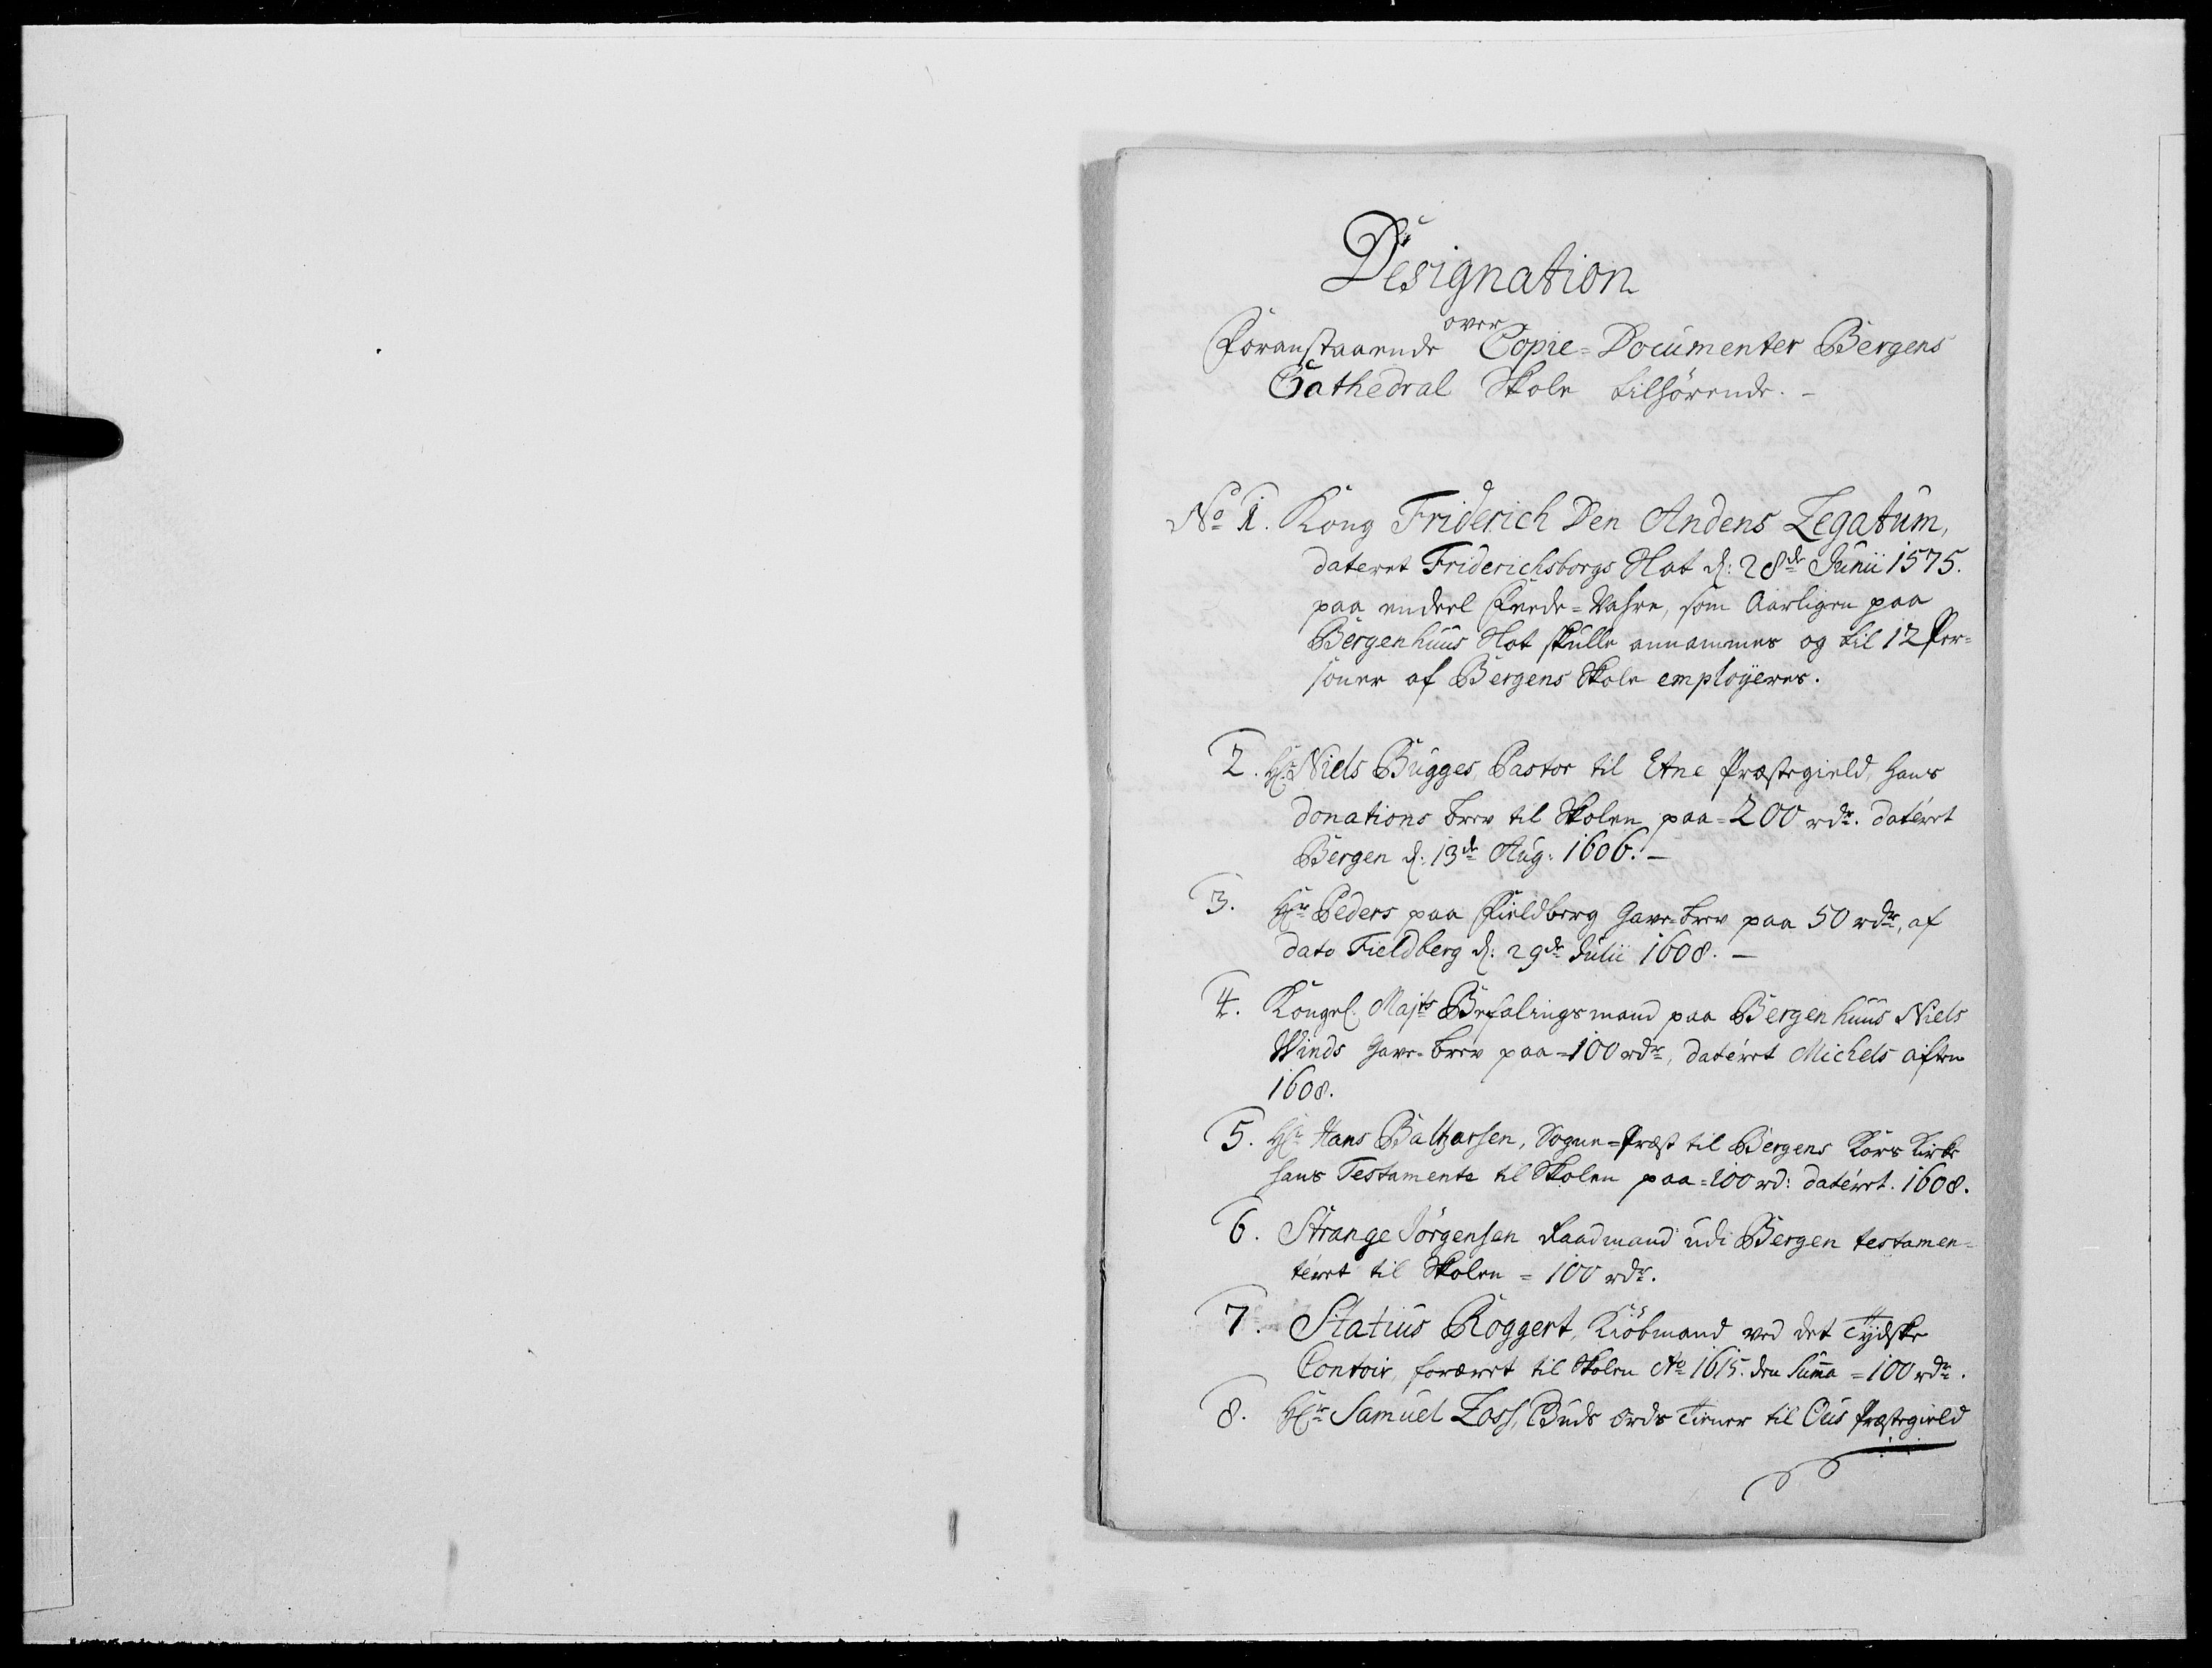 Designation
over
Foranstaaende Copie=Documenter Bergens
Cathedral Skole tilhörende. -
No 1. Kong Friderich Den Andens Legatum,
dateret Friderichsborgs Slot d: 28de Junii 1575.
paa endeel Fede=Vahre, som Aarligen paa
Bergenhuus Slot skulle annammes og til 12 Per=
soner af Bergens Skole employeres.
2. Hr Niels Bugges, Pastor til Etne Præstegield, hans
donations brev til Skolen paa=200 rdr. datéret
Bergen d: 13de Aug: 1606. -
3. Hr Peders paa Fieldberg Gave=brev paa 50 rdr, af
dato Fieldberg d: 29de Julii 1608. -
4. Kongel. Majts Befalingsmand paa Bergenhuus Niels
Winds Gave=brev paa=100 rdr, datéret Michels aften
1608.
5. Hr Hans Baltzersen, Sogne=Præst til Bergens Kors Kirke
hans Testamente til Skolen paa=100 rd: datéret. 1608.
6. Strange Jörgensen Raadmand udi Bergen testamen=
téret til Skolen = 100 rdr.
7. Statius Roggert, Kiöbmand ved det Tydske
Contoir, foræret til Skolen Ao 1615. den Suma = 100 rdr.
8. Hr Samuel Loss, Guds Ords Tiener til Ous Præstegield